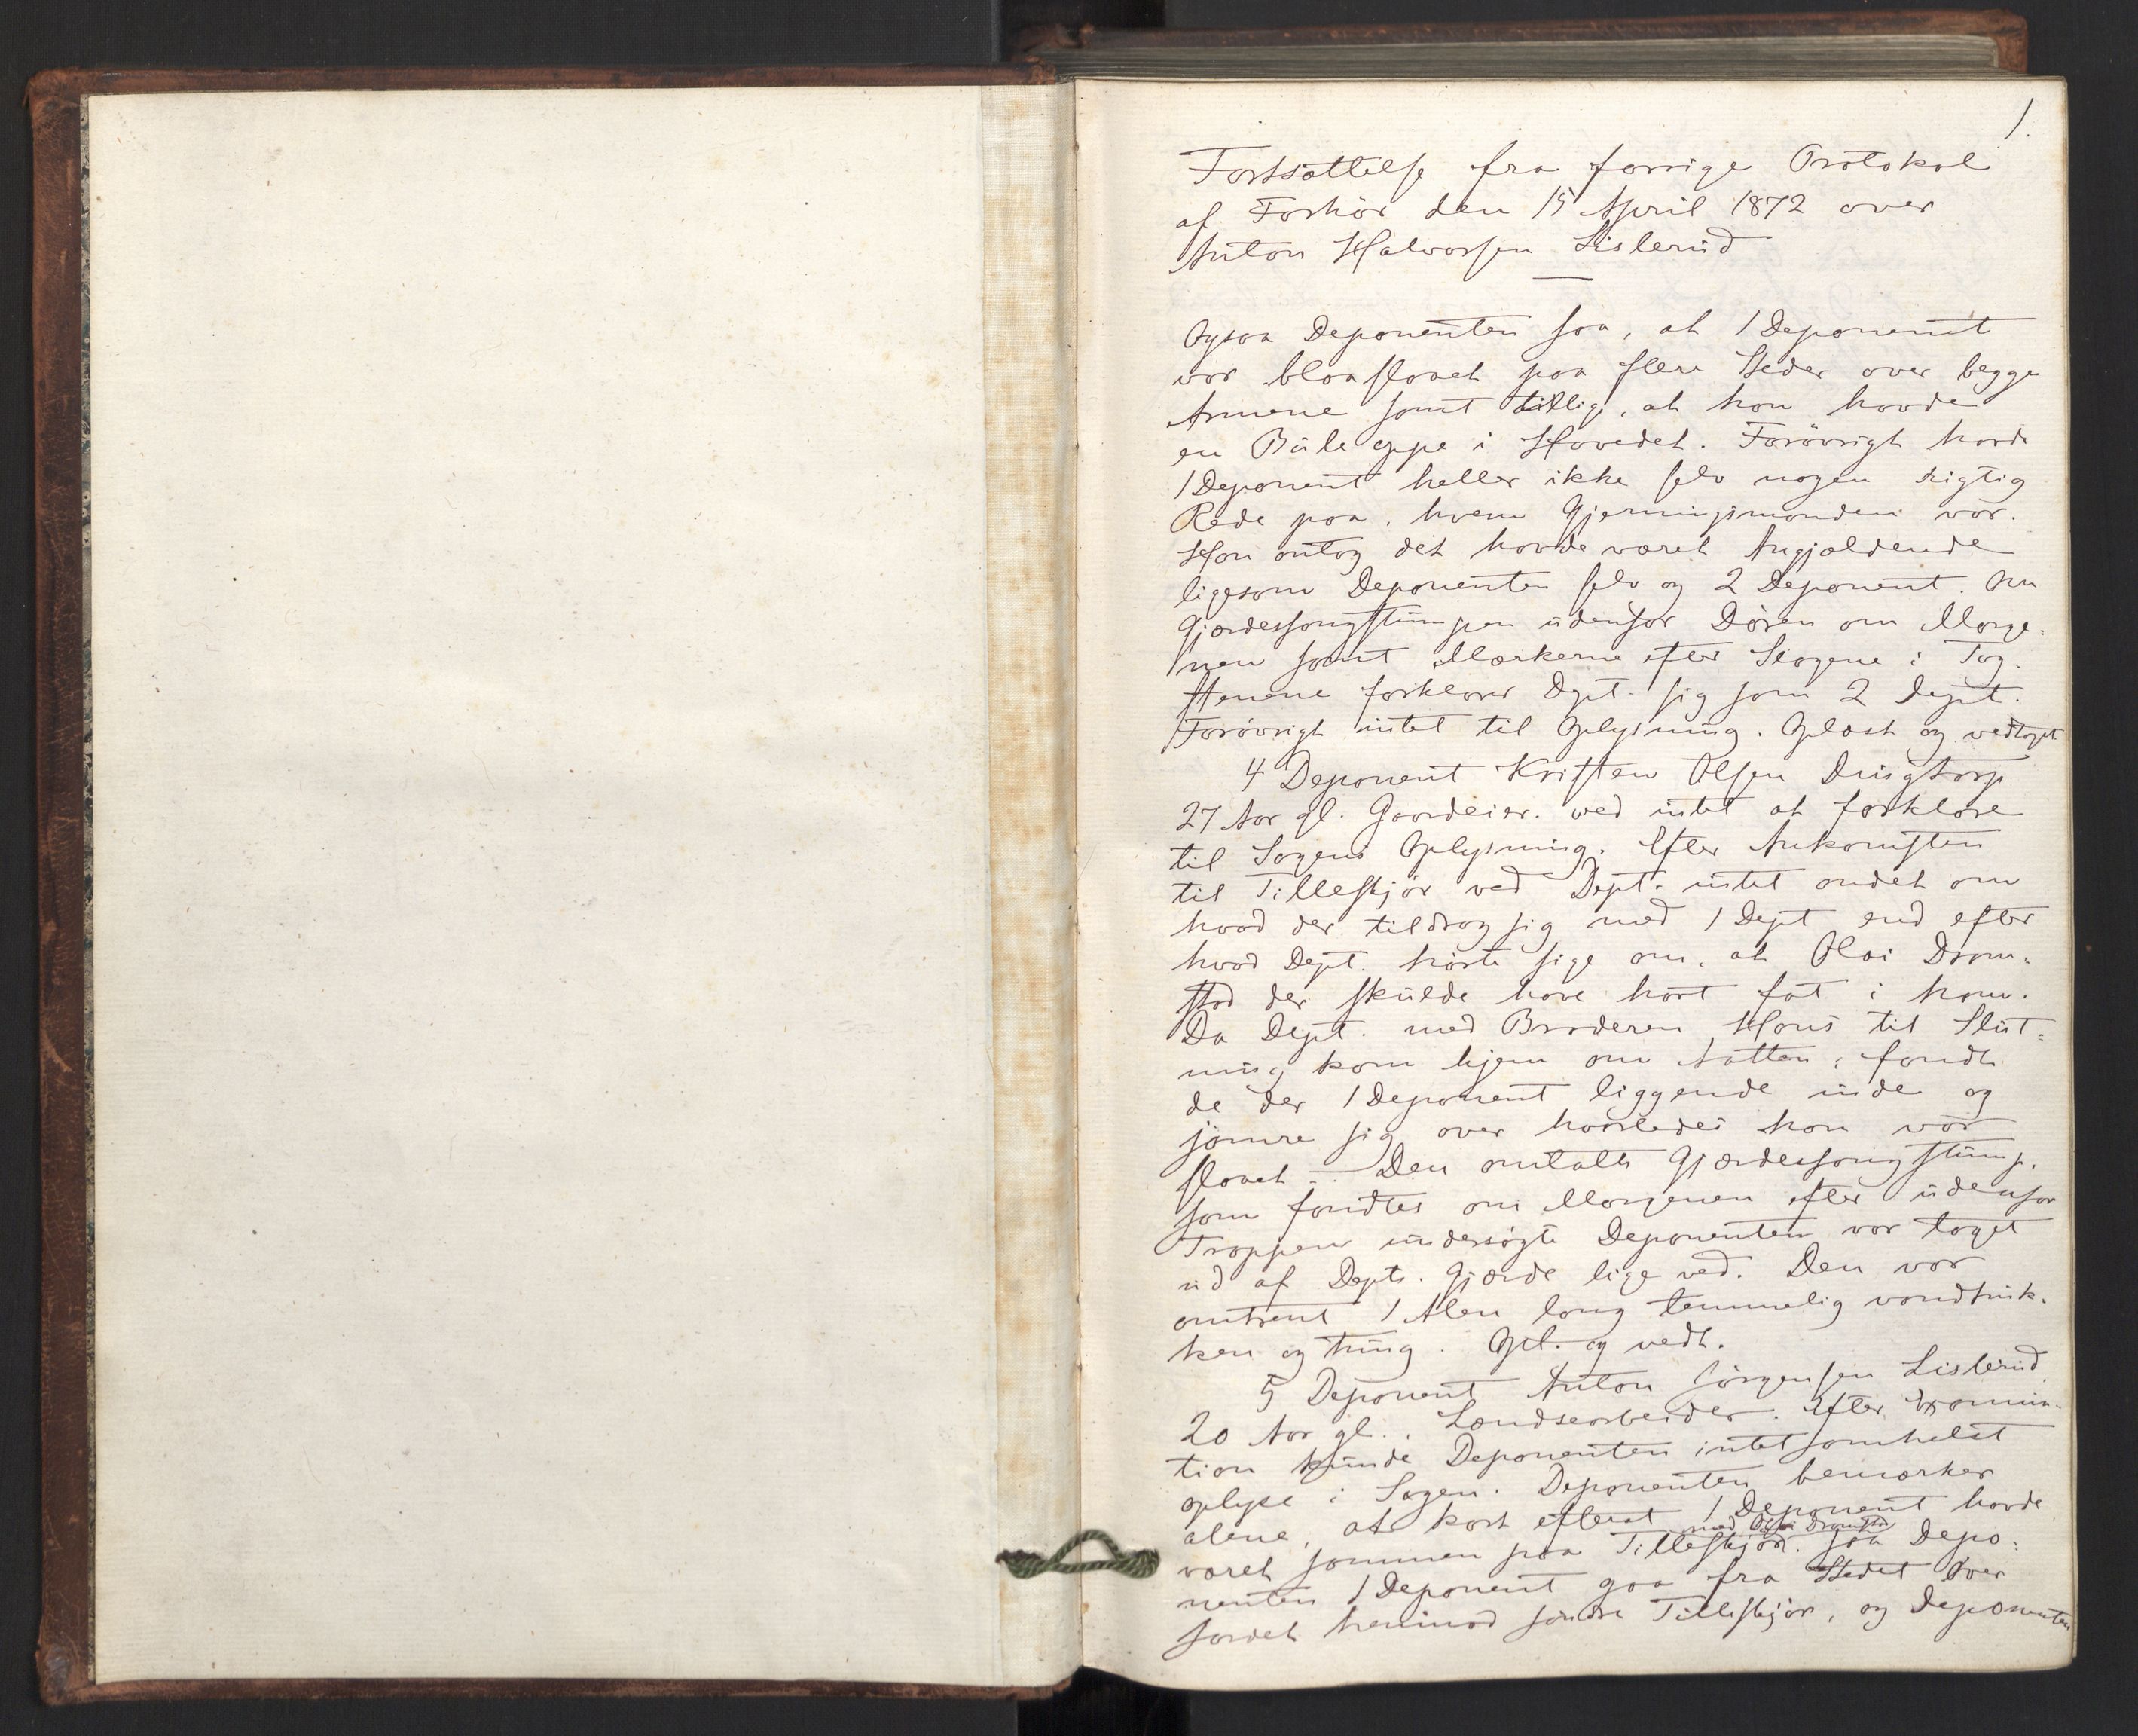 1.
Fortsættelse fra forrige Protokol
af Forhör den 15 April 1872 over
Anton Halvorsen Lislerud
Ogsaa Deponenten saa, at 1 Deponent
var blaaslaaet paa flere Steder over begge
Armene samt tillige, at han havde
en Bule oppe i Hovedet. Forövrigt havde
1 Deponent heller ikke selv nogen rigtig
Rede paa, hvem Gjerningsmanden var.
Han antog det havde været Angjældende
ligesom Deponenten selv og 2 Deponent. Om
Gjærdesfangstumpen udenfor Dören om Morge-
nen samt Mærkerne efter Slagene i Tag-
stenene forklarer Dept. sig som 2 Dept.
Forövrigt intet til Oplysning. Oplæst og vedtaget
4 Deponent Kristen Olsen Dingtorp
27 Aar gl. Gaardeier. ved intet at forklare
til Sagens Oplysning. Efter Ankomsten
til Tilleskjör ved Dept. intet andet om
hvad der tildrog sig med 1 Dept end efter
hvad Dept. hörte sige om, at Olai Dram-
stad der skulde have havt fat i ham.
Da Dept. med Broderen Hans til Slut-
ning kom hjem om Natten, fandt
de der 1 Deponent liggende inde og
jamre sig over hvorledes han var
slaaet. – Den omtalte Gjærdesfangstump,
som fandtes om Morgenen efter udenfor
Trappen undersögte Deponenten var taget
ud af Depts. Gjærde lige ved. Den var
omtrent 1 Alen lang temmelig vandtruk-
ken og tung. Opl. og vedt.
5 Deponent Anton Jörgensen Lislerud
20 Aar gl., Landsarbeider. Efter Examina-
tion kunde Deponenten intetsomhelst
oplyse i Sagen. Deponenten bemærker
alene, at kort efterat 1 Deponent havde
været sammen med Olai Dramstad paa Tilleskjör. saa Depo-
nenten 1 Deponent gaa fra Stedet over
Jordet henimod söndre Tilleskjör, og Deponenten